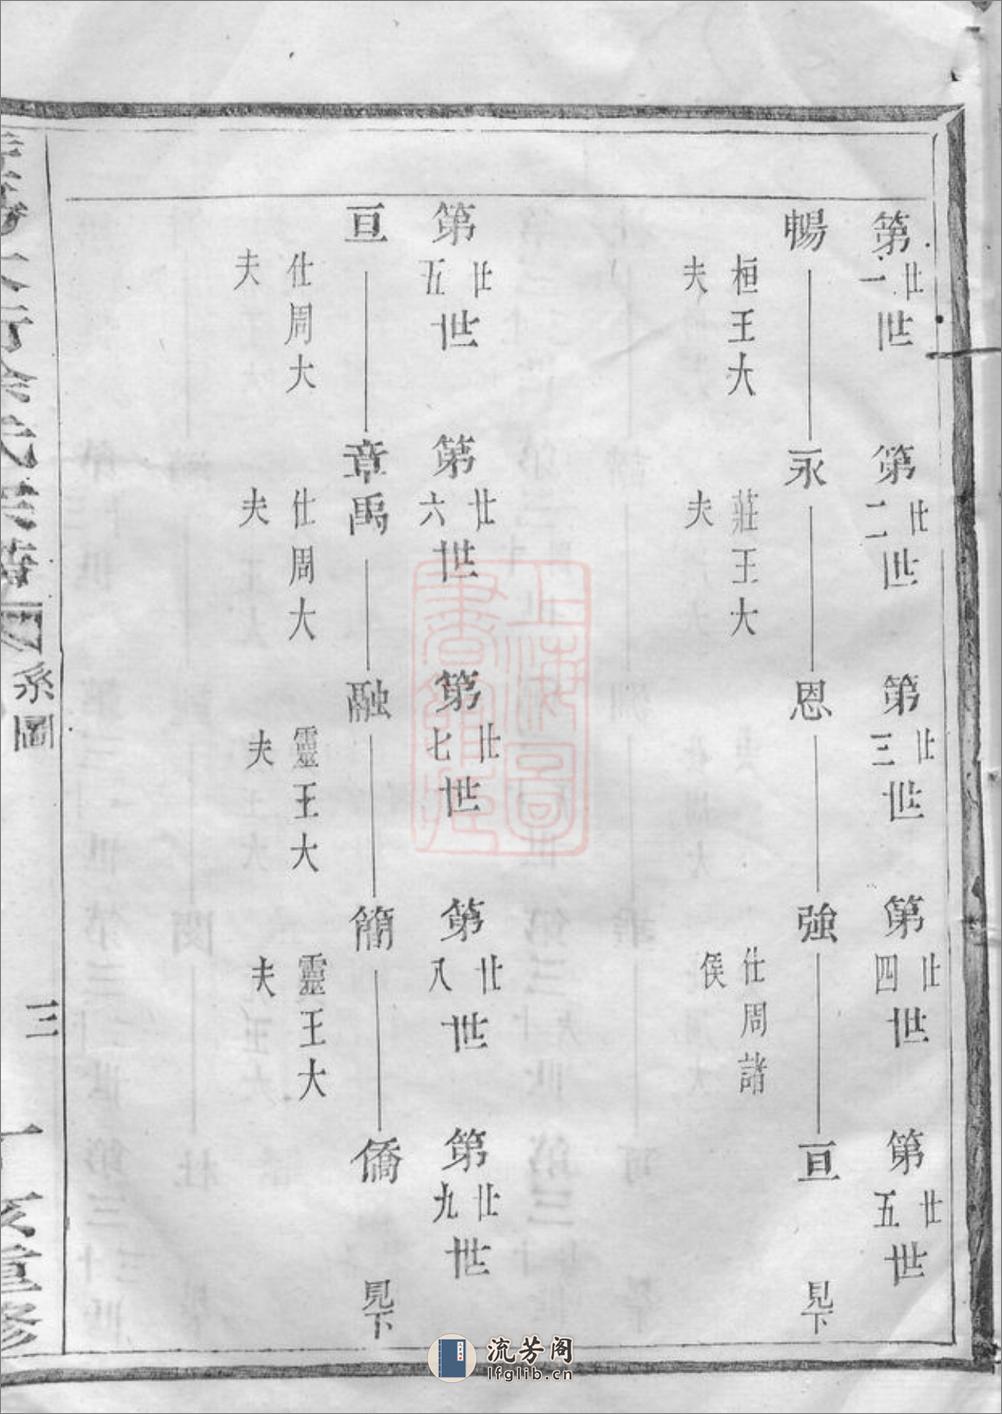 第廿一世
暢
桓王大夫
第廿二世
永
莊王大夫
第廿三世
恩
第廿四世
強
仕周諸侯
第廿五世
亘
見下
第廿五世
亘
仕周大夫
第廿六世
章禹
仕周大夫
第廿七世
融
靈王大夫
第廿八世
簡
靈王大夫
第廿九世
僑
見下
系圖
三
重修
上海圖書館藏
流芳阁
lfglib.cn